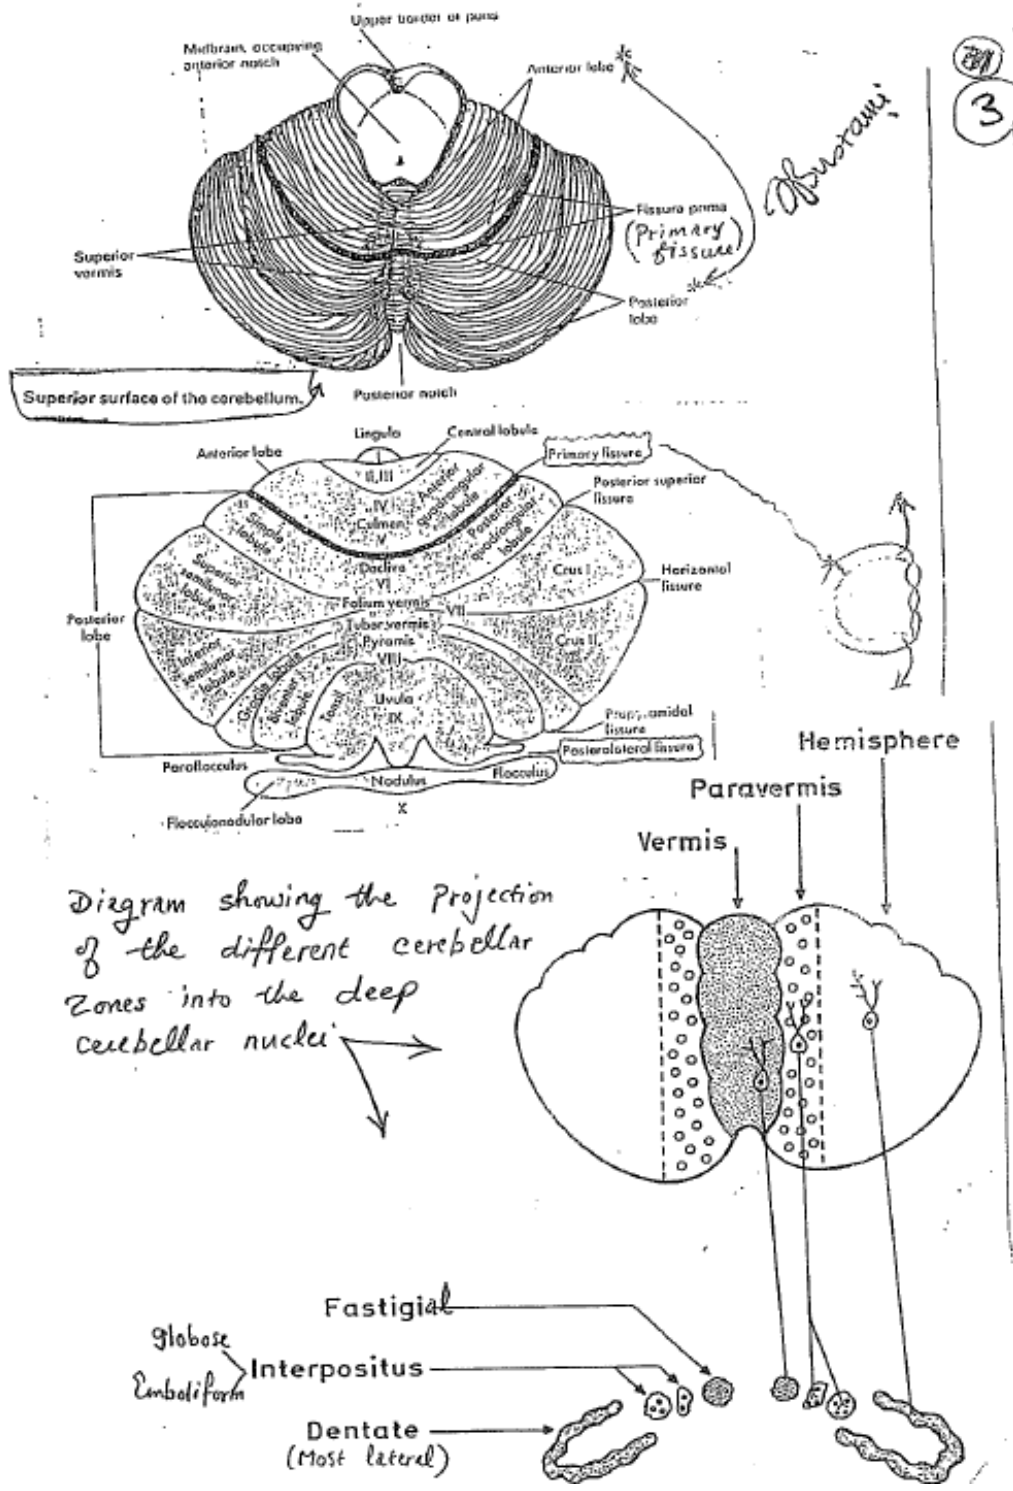 Upper border of pons
Midbrain occupying
anterior notch
Anterior lobe
3
Fissura prima
(Primary
fissure)
Superior
vermis
Posterior
lobe
Posterior notch
Superior surface of the cerebellum.
Lingula
Central lobule
Anterior lobe
Primary fissure
Posterior superior
fissure
II, III
IV
Culmen
V
Anterior
quadrangular
lobule
Simple
lobule
Posterior
quadrangular
lobule
Declive
VI
Superior
semilunar
lobule
Crus I
Horizontal
fissure
Folium vermis
VII
Tuber vermis
Posterior
lobe
Pyramis
VIII
Crus II
Inferior
semilunar
lobule
Gracile lobule
Biventer
lobule
Tonsil
Uvula
IX
fissure
Posterolateral fissure
Paraflocculus
Nodulus
Flocculus
X
Flocculonodular lobe
Hemisphere
Paravermis
Vermis
Diagram showing the Projection
of the different cerebellar
Zones into the deep
cerebellar nuclei
Fastigial
Globose
Interpositus
Emboliform
Dentate
(Most lateral)